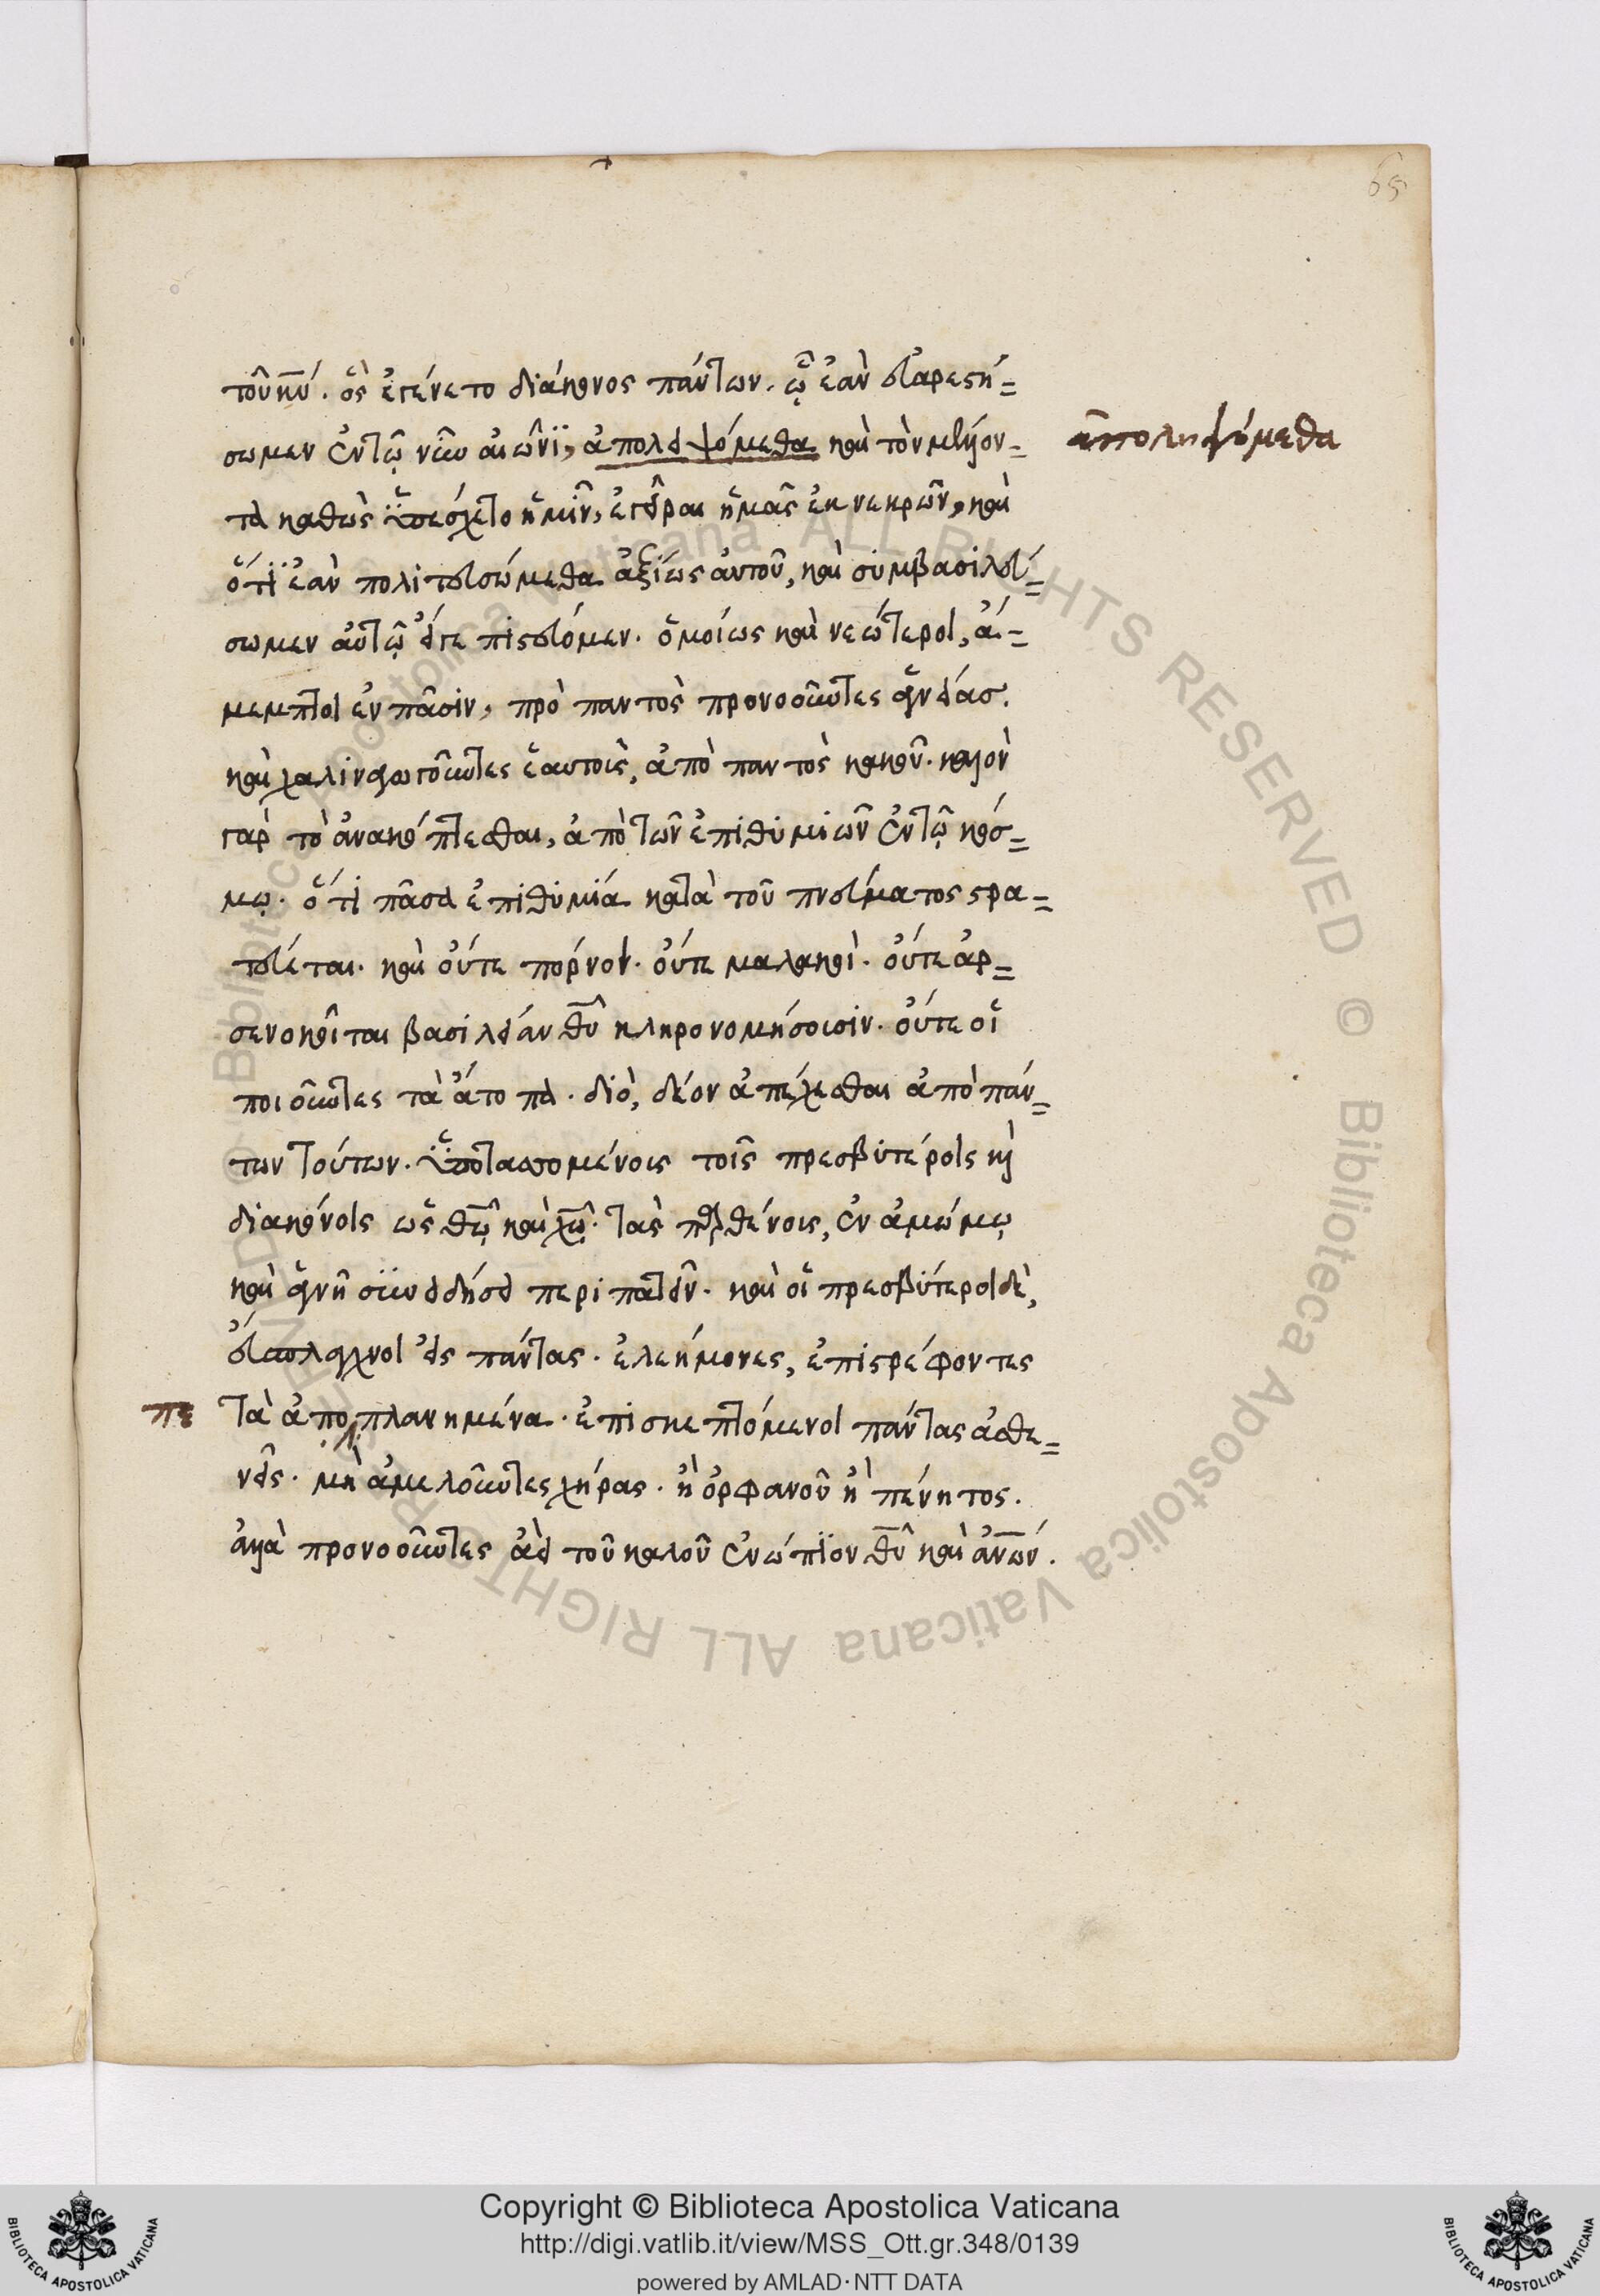 65
τοῦ κῡ. ὃς ἐγένετο διάκονος πάντων. ᾧ ἐὰν εὐαρεστή=
σωμεν ἐν τῷ νῦν αἰῶνϊ, ἀπολειψόμεθα καὶ τὸν μέλλον=
ἀπολη ψόμεθα
τα καθὼς ὑπέσχετο ἡμῖν, ἐγεῖραι ἡμᾶς ἐκ νεκρῶν, καὶ
ὅτϊ ἐὰν πολιτευσώμεθα ἀξίως αὐτοῦ, καὶ συμβασιλεύ=
σωμεν αὐτῷ εἴγε πιστεύομεν. ὁμοίως καὶ νεώτεροι, ἄ=
μεμπτοι ἐν πᾶσιν, πρὸ παντὸς προνοοῦντες ἁγνείας.
καὶ χαλιναγωγοῦντες ἑαυτοὺς, ἀπὸ παντὸς κακοῦ. καλὸν
γὰρ τὸ ἀνακόπτεσθαι, ἀπὸ τῶν ἐπιθυμιῶν ἐν τῷ κόσ=
μῳ. ὅτι πᾶσα ἐπιθυμία κατὰ τοῦ πνεύματος στρα=
τεύεται. καὶ οὔτε πόρνοι. οὔτε μαλακοὶ. οὔτε ἀρ=
σενοκοῖται βασιλείαν θῡ κληρονομήσουσιν. οὔτε οἱ
ποιοῦντες τὰ ἄτοπα. διὸ, δέον ἀπέχεσθαι ἀπὸ πάν=
των τούτων. ὑποτασσομένους τοῖς πρεσβυτέροις κὶ
διακόνοις ὡς θῶ καὶ χῶ. τὰς παρθένους, ἐν ἀμώμῳ
καὶ ἁγνῇ συνειδήσει περιπατεῖν. καὶ οἱ πρεσβύτεροι δὲ,
εὔσπλαγχνοι εἰς πάντας. ἐλεήμονες, ἐπιστρέφοντες
πε τὰ ἀποπλανημένα. ἐπισκεπτόμενοι πάντας ἀσθε=
νεῖς. μὴ ἀμελοῦντες χήρας. ἢ ὀρφανοῦ ἢ πένητος.
ἀλλὰ προνοοῦντες ἀεὶ τοῦ καλοῦ ἐνώπϊον θῡ καὶ ἀνων.
Copyright © Biblioteca Apostolica Vaticana
http://digi.vatlib.it/view/MSS_Ott.gr.348/0139
powered by AMLAD·NTT DATA